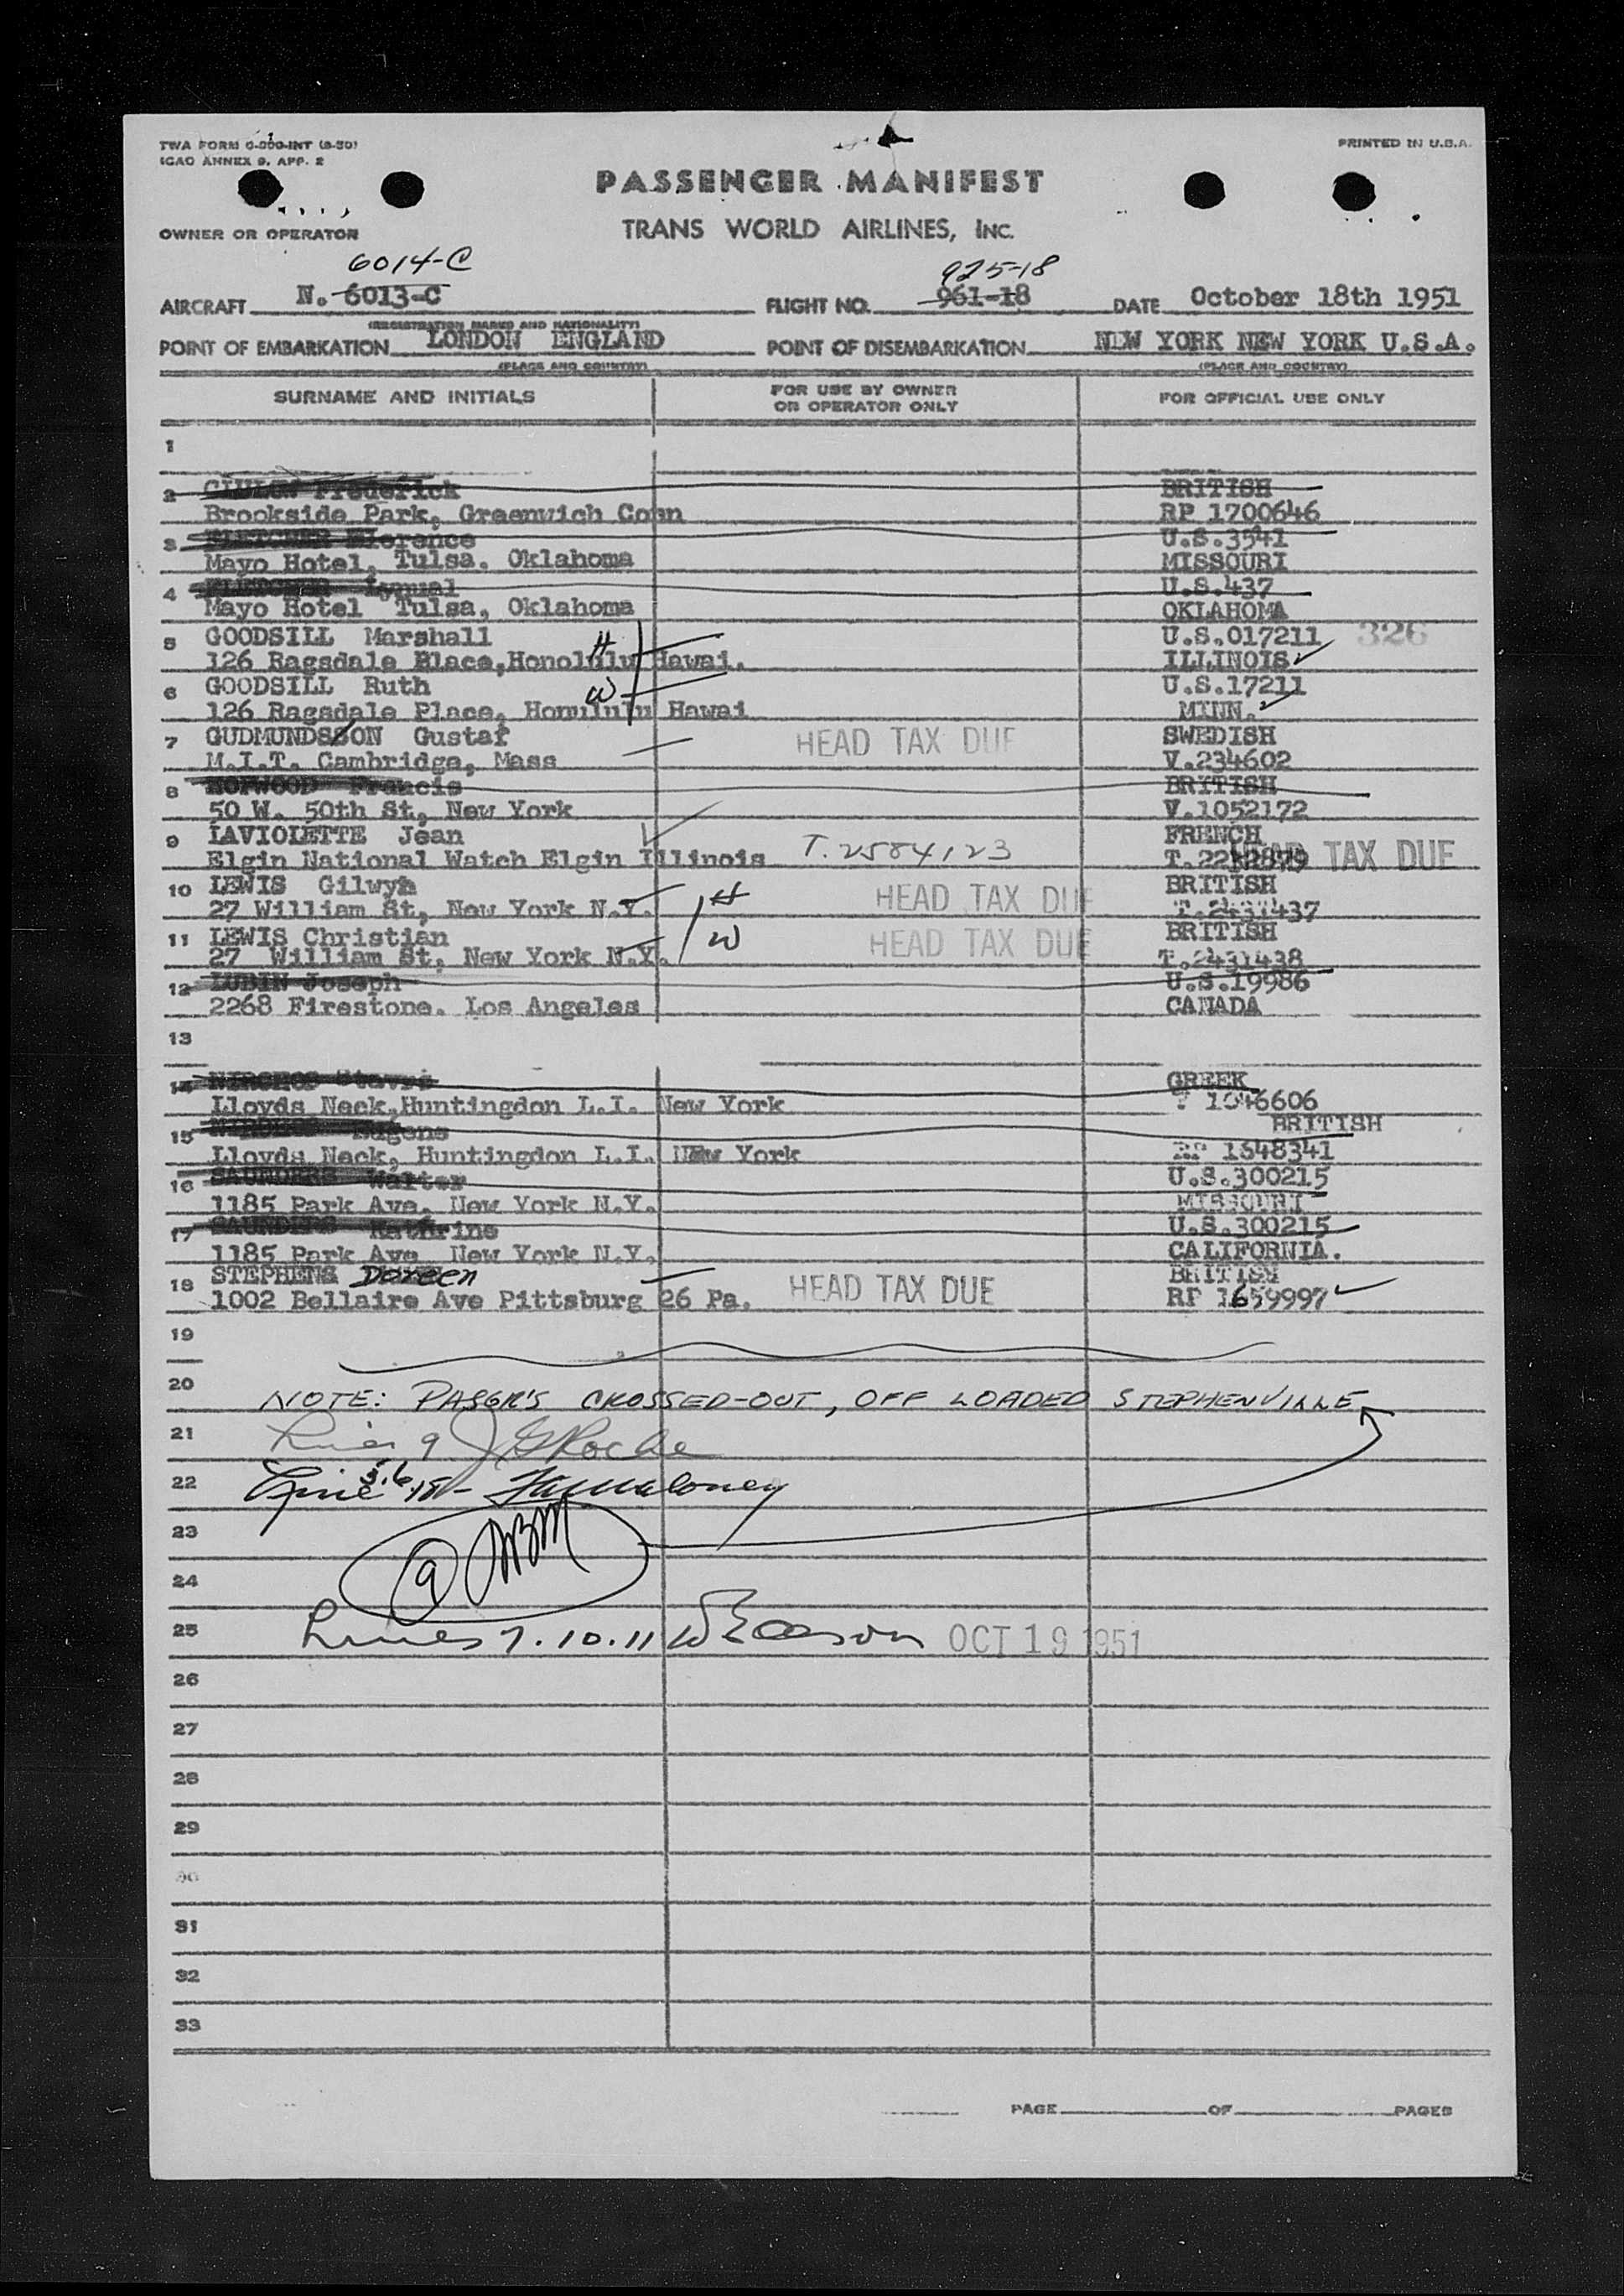 TWA FORM 0-300-INT (8-50)
ICAO ANNEX 9, APP. 2
PRINTED IN U.S.A.
PASSENGER MANIFEST
OWNER OR OPERATOR
TRANS WORLD AIRLINES, INC.
6014-C 925-18
AIRCRAFT N. 6013-C FLIGHT NO. 961-18 DATE October 18th 1951
(REGISTRATION MARKS AND NATIONALITY)
POINT OF EMBARKATION LONDON ENGLAND POINT OF DISEMBARKATION NEW YORK NEW YORK U.S.A.
(PLACE AND COUNTRY) (PLACE AND COUNTRY)
SURNAME AND INITIALS FOR USE BY OWNER OR OPERATOR ONLY FOR OFFICIAL USE ONLY
1
2 Frederick BRITISH
Brookside Park, Greenwich Conn RP 1700646
3 FLETCHER Florence U.S.3541
Mayo Hotel, Tulsa. Oklahoma MISSOURI
4 FLETCHER U.S.437
Mayo Hotel Tulsa, Oklahoma OKLAHOMA
5 GOODSILL Marshall H U.S.017211 326
126 Ragsdale Place,Honolulu Hawai. ILLINOIS
6 GOODSILL Ruth W U.S.17211
126 Ragsdale Place, Honululu Hawai MINN.
7 GUDMUNDSSON Gustaf HEAD TAX DUE SWEDISH
M.I.T. Cambridge, Mass V.234602
8 HOPWOOD Francis BRITISH
50 W. 50th St, New York V.1052172
9 LAVIOLETTE Jean FRENCH
Elgin National Watch Elgin Illinois T.2584123 HEAD TAX DUE
10 LEWIS Gilwyn H HEAD TAX DUE BRITISH
27 William St, New York N.Y. T.2431437
11 LEWIS Christian W HEAD TAX DUE BRITISH
27 William St, New York N.Y. T.2431438
12 LUBIN Joseph U.S.19986
2268 Firestone. Los Angeles CANADA
13
14 GREEK
Lloyds Neck,Huntingdon L.I. New York 1046606
15 Eugene BRITISH
Lloyds Neck, Huntingdon L.I. New York RP 1648341
16 SAUNDERS Walter U.S.300215
1185 Park Ave. New York N.Y. MISSOURI
17 SAUNDERS Kathrine U.S.300215
1185 Park Ave New York N.Y. CALIFORNIA.
18 STEPHENS Doreen HEAD TAX DUE BRITISH
1002 Bellaire Ave Pittsburg 26 Pa. RP 1659997
19
20 NOTE: PASGR'S CROSSED-OUT, OFF LOADED STEPHENVILLE
21 Line 9 J G Roche
22 Line 5.6.18 - Maloney
23
24
25 Lines 7.10.11 OCT 19 1951
26
27
28
29
30
31
32
33
PAGE OF PAGES